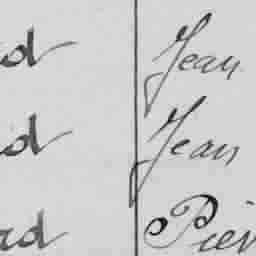 d Jean
id Jean
rd Pier